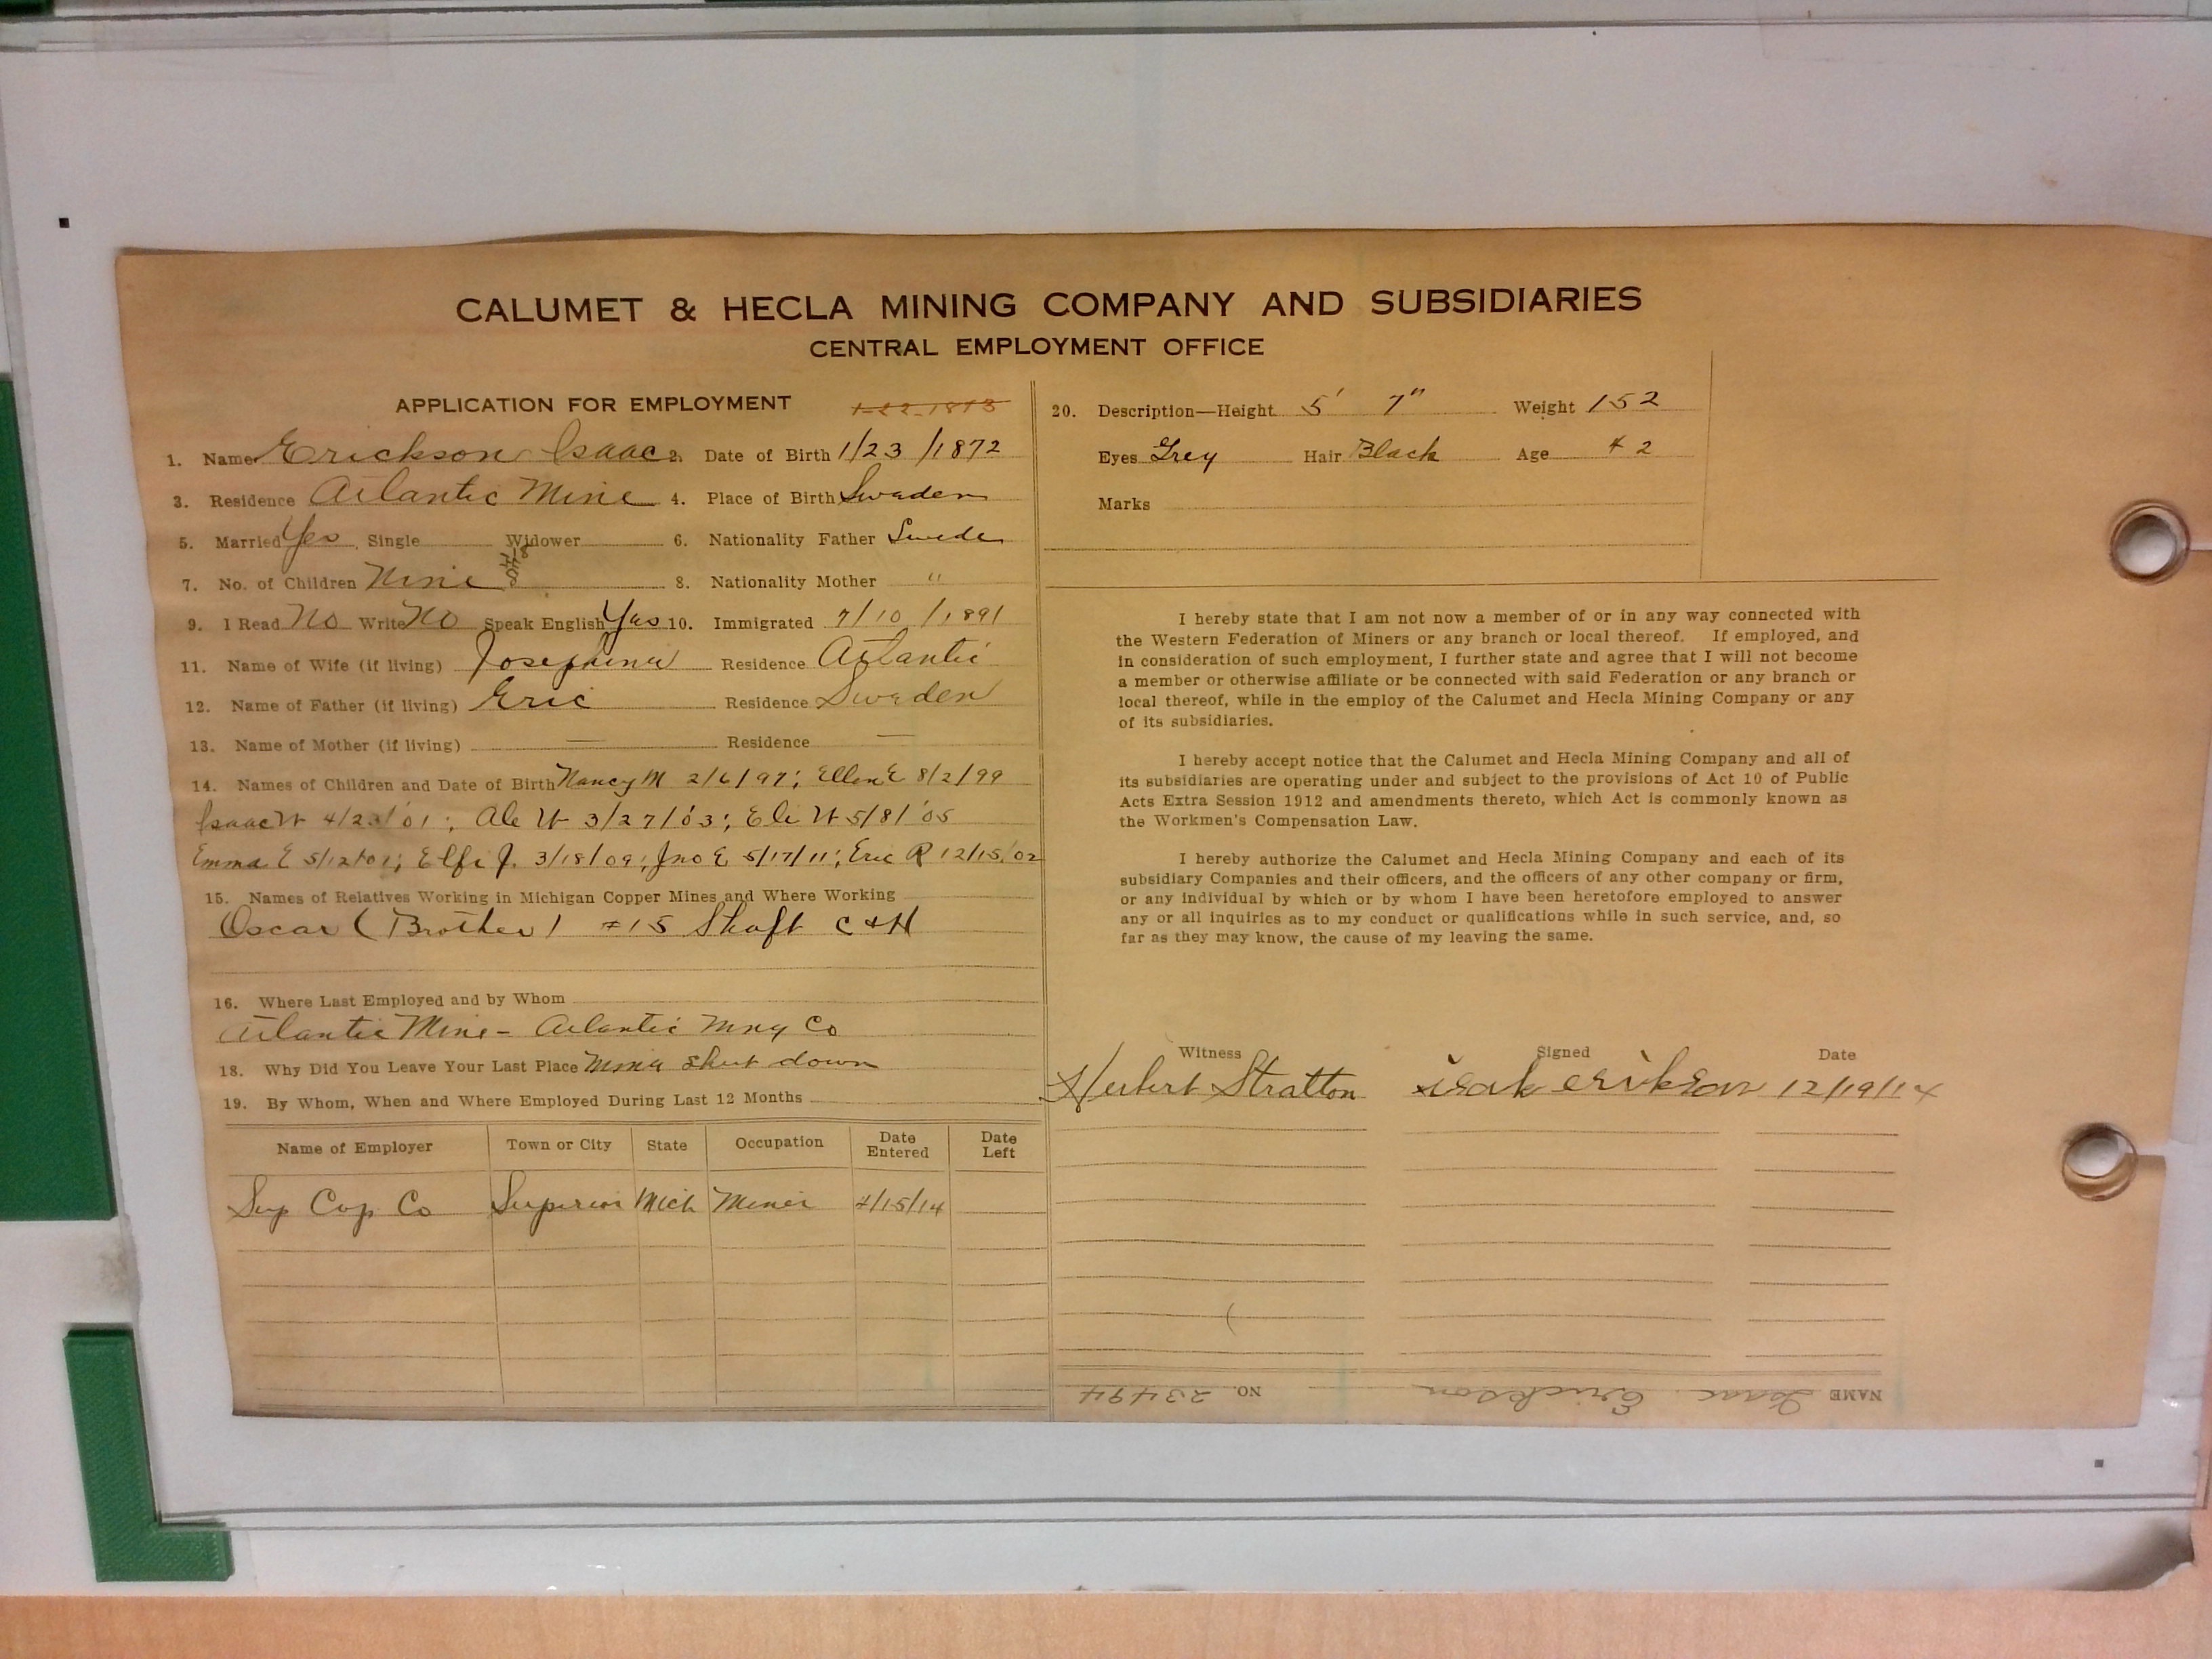 CALUMET & HECLA MINING COMPANY AND SUBSIDIARIES
CENTRAL EMPLOYMENT OFFICE
APPLICATION FOR EMPLOYMENT 1-22-1873
1. Name Erickson Isaac 2. Date of Birth 1/23/1872
3. Residence Atlantic Mine 4. Place of Birth Sweden
5. Married Yes Single Widower 6. Nationality Father Swede
7. No. of Children Nine 8. Nationality Mother "
9. I Read No Write No Speak English Yes 10. Immigrated 7/10/1891
11. Name of Wife (if living) Josephina Residence Atlantic
12. Name of Father (if living) Eric Residence Sweden
13. Name of Mother (if living) — Residence —
14. Names of Children and Date of Birth Nancy M 2/6/97; Ellen E 8/2/99
Isaac W 4/23/'01; Ale W 3/27/'03; Eli W 5/8/'05
Emma E 5/12/07; Elfi J. 3/18/09; Jno E 5/17/11; Eric R 12/15/02
15. Names of Relatives Working in Michigan Copper Mines and Where Working
Oscar (Brother) #15 Shaft C & H
16. Where Last Employed and by Whom
Atlantic Mine - Atlantic Mng Co
18. Why Did You Leave Your Last Place Mine shut down
19. By Whom, When and Where Employed During Last 12 Months
Name of Employer Town or City State Occupation Date Entered Date Left
Sup Cop Co Superior Mich Miner 4/15/14
20. Description—Height 5' 7" Weight 152
Eyes Grey Hair Black Age 42
Marks
I hereby state that I am not now a member of or in any way connected with
the Western Federation of Miners or any branch or local thereof. If employed, and
in consideration of such employment, I further state and agree that I will not become
a member or otherwise affiliate or be connected with said Federation or any branch or
local thereof, while in the employ of the Calumet and Hecla Mining Company or any
of its subsidiaries.
I hereby accept notice that the Calumet and Hecla Mining Company and all of
its subsidiaries are operating under and subject to the provisions of Act 10 of Public
Acts Extra Session 1912 and amendments thereto, which Act is commonly known as
the Workmen's Compensation Law.
I hereby authorize the Calumet and Hecla Mining Company and each of its
subsidiary Companies and their officers, and the officers of any other company or firm,
or any individual by which or by whom I have been heretofore employed to answer
any or all inquiries as to my conduct or qualifications while in such service, and, so
far as they may know, the cause of my leaving the same.
Witness Signed Date
Herbert Stratton isak erikson 12/19/14
NAME Isaac Erickson NO. 23494